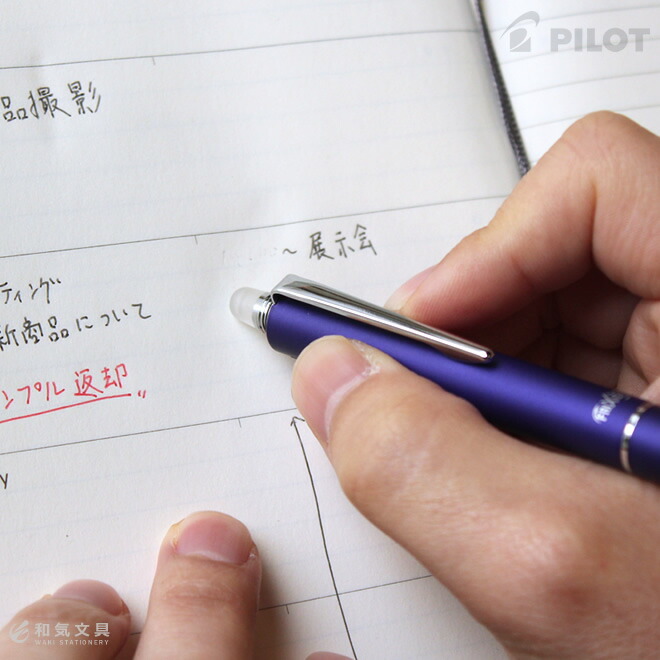 PILOT
品撮影
〜展示会
ティング
新商品について
ンプル返却〃
y
和気文具
WAKI STATIONERY